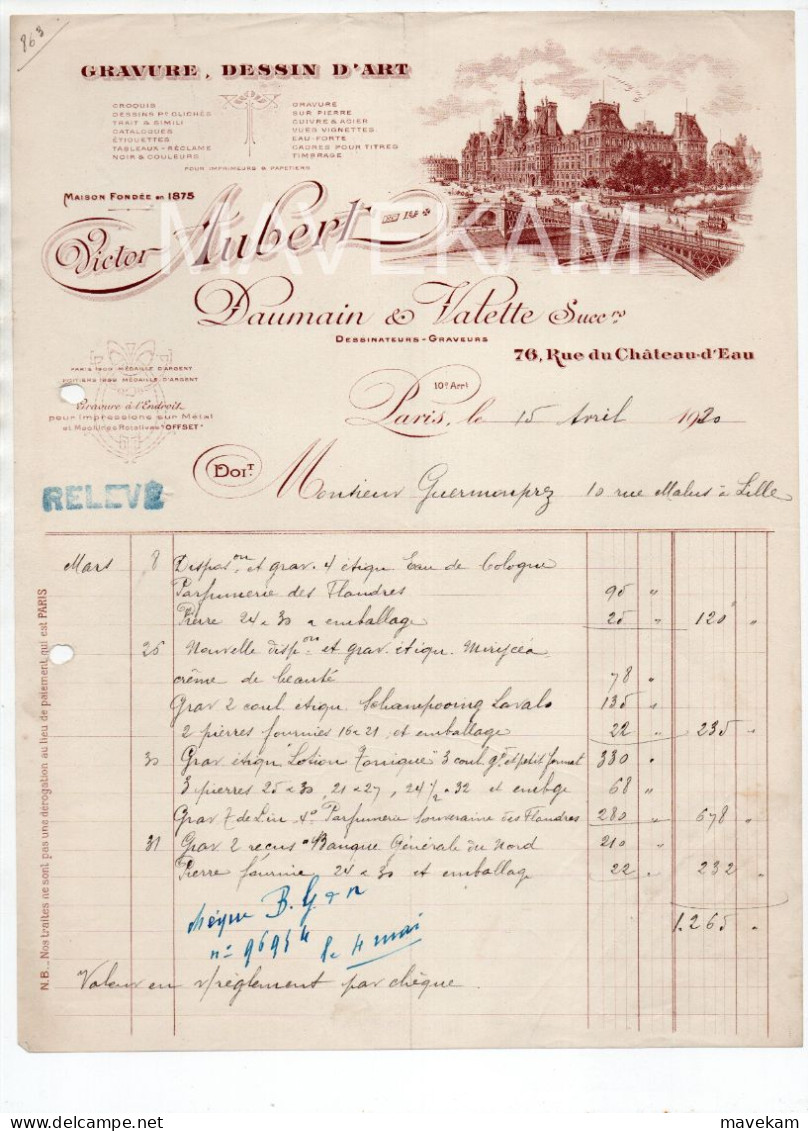 863
GRAVURE, DESSIN D'ART
CROQUIS
DESSINS Pr CLICHÉS
TRAIT & SIMILI
CATALOGUES
ÉTIQUETTES
TABLEAUX-RÉCLAME
NOIR & COULEURS
GRAVURE
SUR PIERRE
CUIVRE & ACIER
VUES VIGNETTES
EAU-FORTE
CADRES POUR TITRES
TIMBRAGE
POUR IMPRIMEURS & PAPETIERS
MAISON FONDÉE en 1875
MAVEKAM
Victor Aubert
Daumain & Valette Succrs
DESSINATEURS-GRAVEURS
76, Rue du Château-d'Eau
10e Arrt
MÉDAILLE D'ARGENT
MÉDAILLE D'ARGENT
Gravure à l'Endroit
pour Impressions sur Métal
et Machines Rotatives "OFFSET"
Paris, le 15 Avril 1920
DOIT
Monsieur Guermonprez 10 rue Malus à Lille
RELEVÉ
Mars 8 Disposon et grav. 4 étiqu Eau de Cologne
Parfumerie des Flandres 95 "
Pierre 24 x 30 & emballage 25 " 120 "
25 Nouvelle dispon et grav. étiqu.
crême de beauté 78 "
Grav 2 coul étiqu Schampooing Lavalo 135 "
2 pierres fournies 16 x 21, et emballage 22 " 235 "
30 Grav étiqu "Lotion Tonique" 3 coul gd et petit format 330 "
3 pierres 25 x 30, 21 x 27, 24 1/2 x 32 et embge 68 "
Grav Parfumerie Souveraine des Flandres 280 " 678 "
31 Grav 2 reçus "Banque Générale du Nord 210 "
Pierre fournie 24 x 30 et emballage 22 " 232 "
1.265 "
chèque B. G. d n
n° 96954 le 4 mai
Valeur en v/règlement par chèque.
N.B._ Nos traites ne sont pas une dérogation au lieu de paiement qui est PARIS
delcampe.net
mavekam